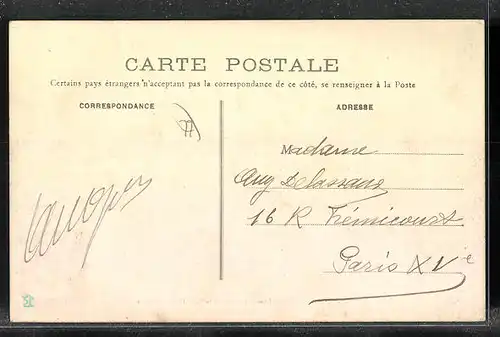 CARTE POSTALE
Certains pays étrangers n'acceptant pas la correspondance de ce côté, se renseigner à la Poste
CORRESPONDANCE
ADRESSE
Madame
Aug Delassaux
16 R Frémicourt
Paris XVe